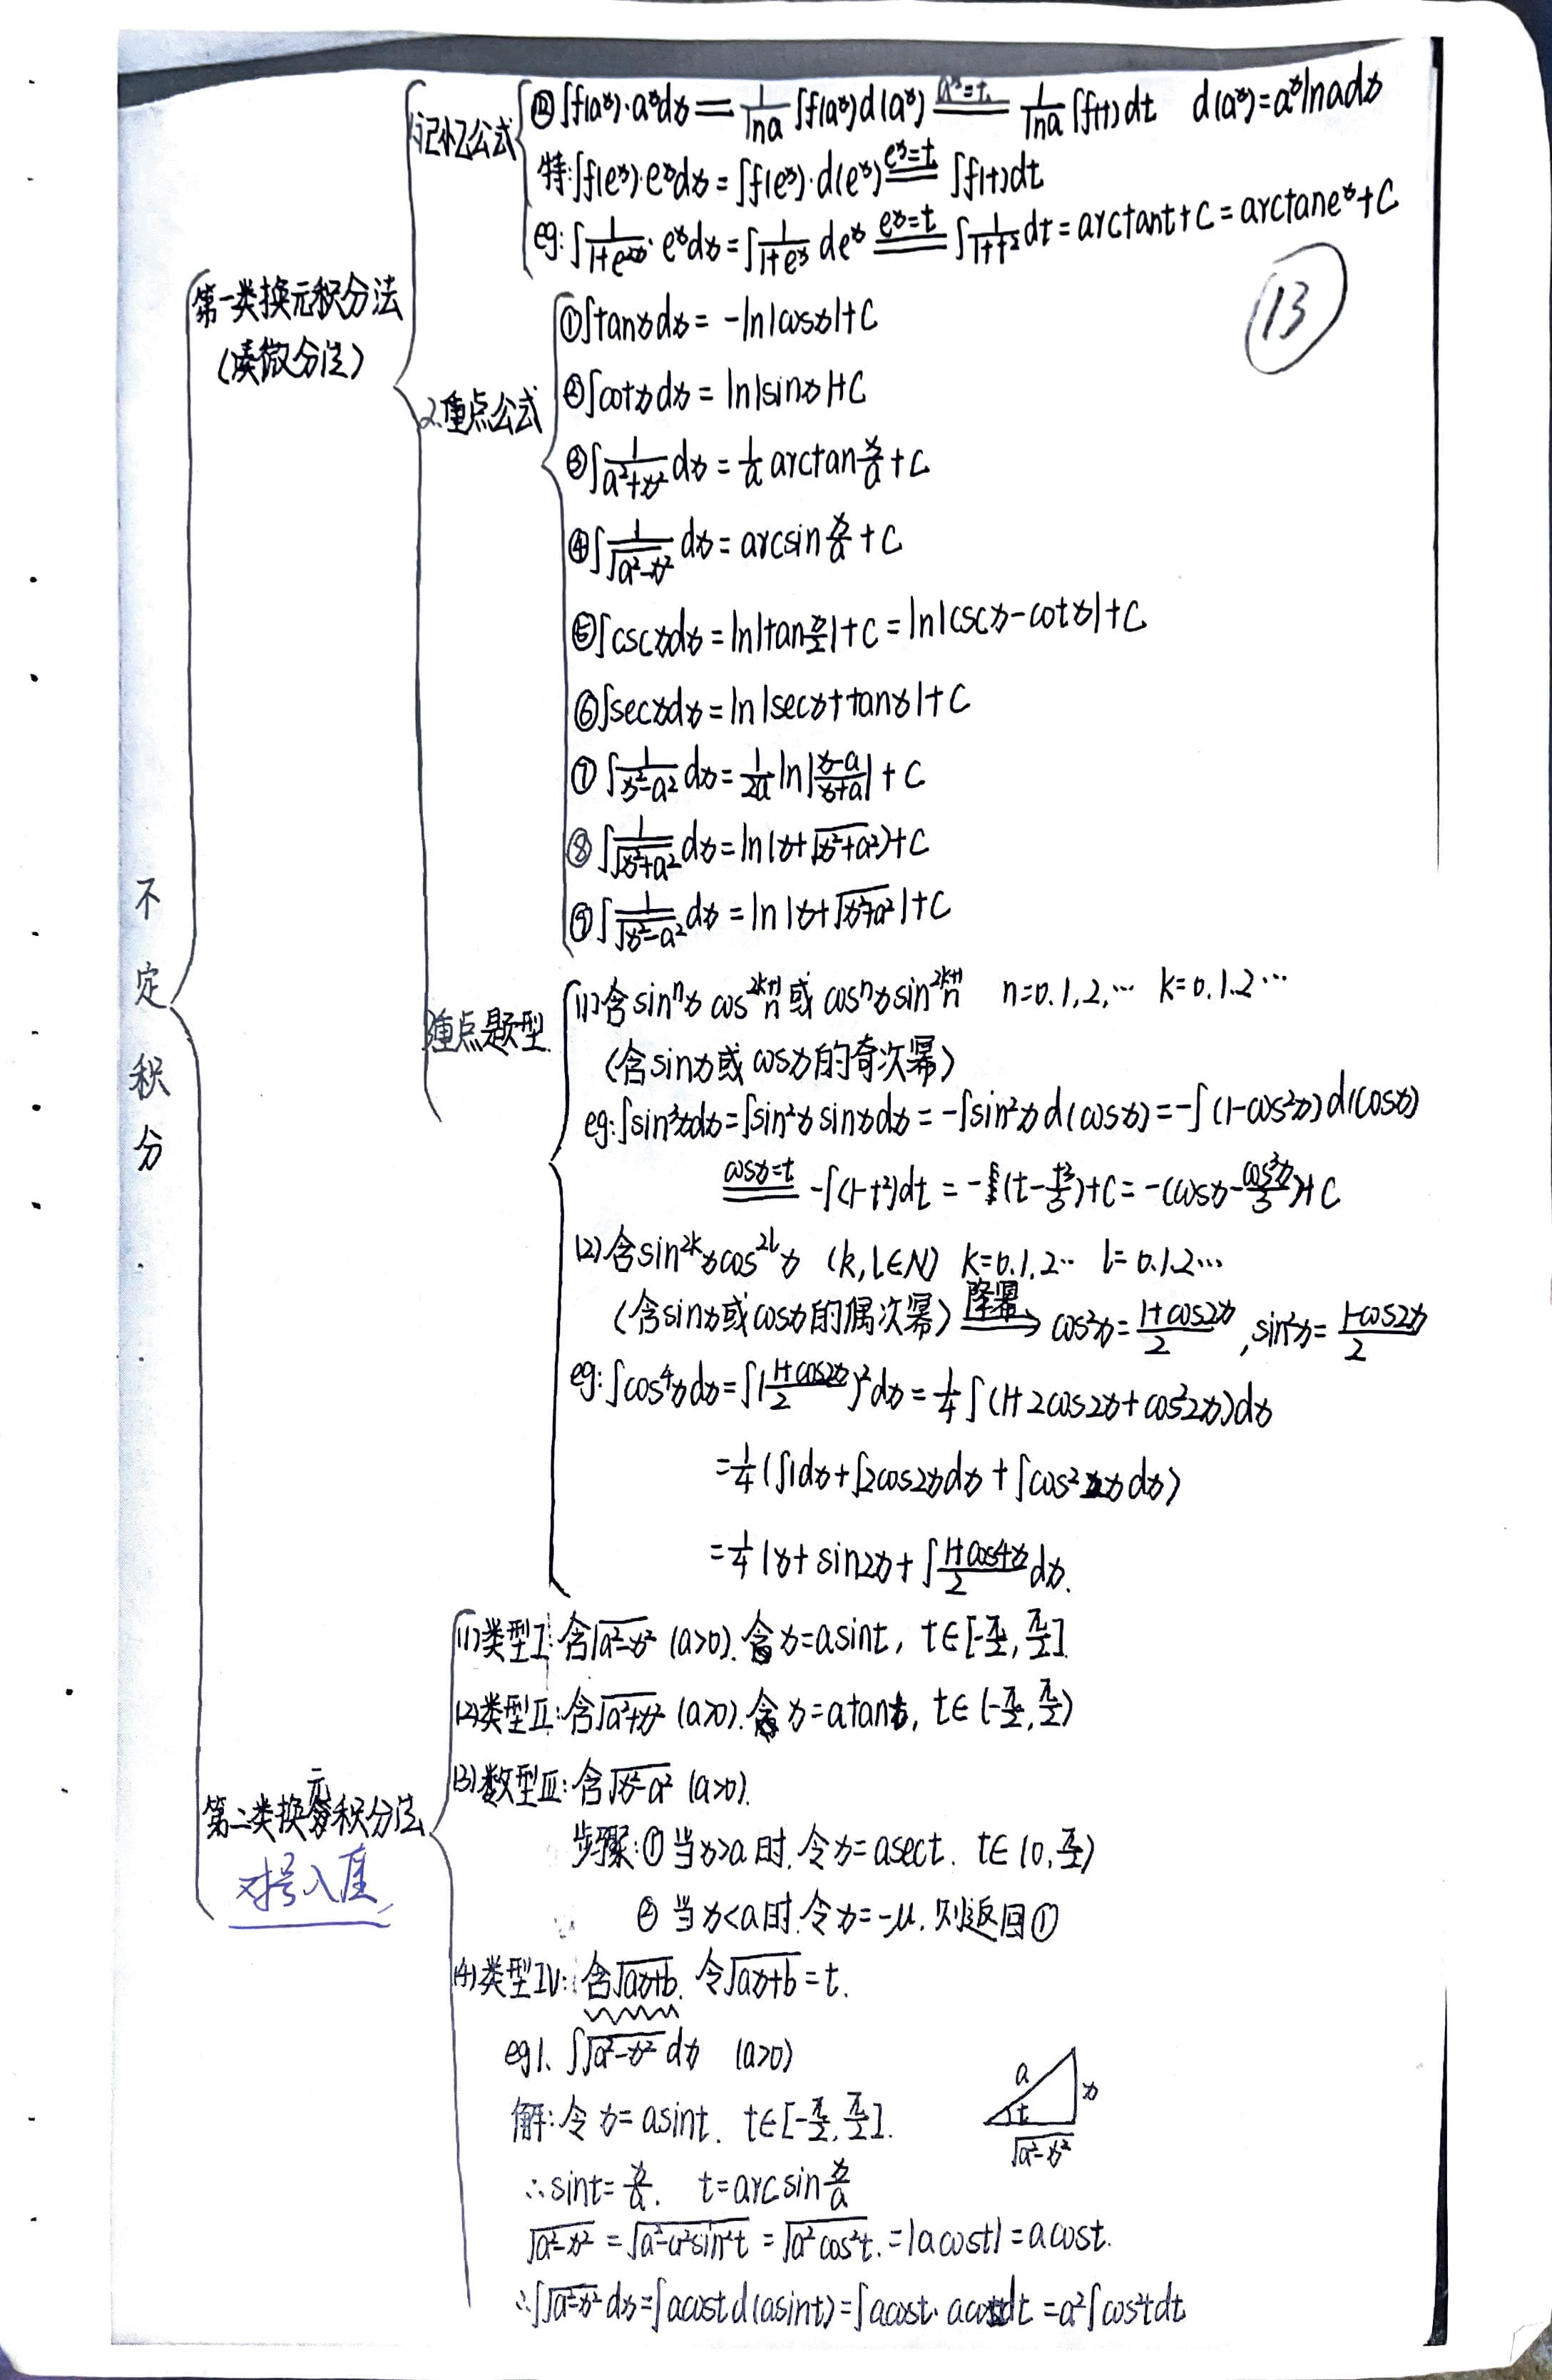 不定积分
第一类换元积分法
(凑微分法)
1.记忆公式
⑫∫f(aˣ)·aˣdx = 1/lna ∫f(aˣ)d(aˣ) =(aˣ=t) 1/lna ∫f(t)dt d(aˣ)=aˣlnadx
特:∫f(eˣ)·eˣdx=∫f(eˣ)·d(eˣ) =(eˣ=t) ∫f(t)dt
eg:∫1/(1+e²ˣ)·eˣdx=∫1/(1+eˣ) deˣ =(eˣ=t) ∫1/(1+t²)dt=arctant+C=arctaneˣ+C
⑬
2.重点公式
①∫tanxdx=-ln|cosx|+C
②∫cotxdx=ln|sinx|+C
③∫1/(a²+x²)dx=1/a arctan x/a+C
④∫1/√(a²-x²)dx=arcsin x/a+C
⑤∫cscxdx=ln|tan x/2|+C=ln|cscx-cotx|+C
⑥∫secxdx=ln|secx+tanx|+C
⑦∫1/(x²-a²)dx=1/2a ln|(x-a)/(x+a)|+C
⑧∫1/√(x²+a²)dx=ln(x+√(x²+a²))+C
⑨∫1/√(x²-a²)dx=ln|x+√(x²-a²)|+C
重点题型
(1)含sinⁿx cos²ᵏ⁺¹n或cosⁿxsin²ᵏ⁺¹n n=0.1,2,… k=0.1.2…
(含sinx或cosx的奇次幂)
eg:∫sin³xdx=∫sin²x sinxdx=-∫sin²xd(cosx)=-∫(1-cos²x)d(cosx)
=(cosx=t) -∫(1-t²)dt=-(t-t³/3)+C=-(cosx-cos³x/3)+C
(2)含sin²ᵏxcos²ˡx (k,l∈N) k=0.1,2… l=0.1.2…
(含sinx或cosx的偶次幂) 降幂→ cos²x=(1+cos2x)/2,sin²x=(1-cos2x)/2
eg:∫cos⁴xdx=∫((1+cos2x)/2)²dx=1/4∫(1+2cos2x+cos²2x)dx
=1/4(∫1dx+∫2cos2xdx+∫cos²2xdx)
=1/4(x+sin2x+∫(1+cos4x)/2 dx.
第二类换元积分法
对号入座
(1)类型Ⅰ:含√(a²-x²) (a>0).令x=asint, t∈[-π/2,π/2].
(2)类型Ⅱ:含√(a²+x²) (a>0).令x=atant, t∈(-π/2,π/2)
(3)数型Ⅲ:含√(x²-a²) (a>0).
步骤:①当x>a时.令x=asect. t∈(0.π/2)
②当x<a时.令x=-μ.则返回①
(4)类型IV:含√(ax+b).令√(ax+b)=t.
eg1.∫√(a²-x²)dx (a>0)
解:令x=asint. t∈[-π/2,π/2].
a
x
t
√(a²-x²)
∴sint=x/a. t=arcsin x/a
√(a²-x²)=√(a²-a²sin²t)=√(a²cos²t).=|acost|=acost.
∴∫√(a²-x²)dx=∫acostd(asint)=∫acost·acostdt=a²∫cos²tdt